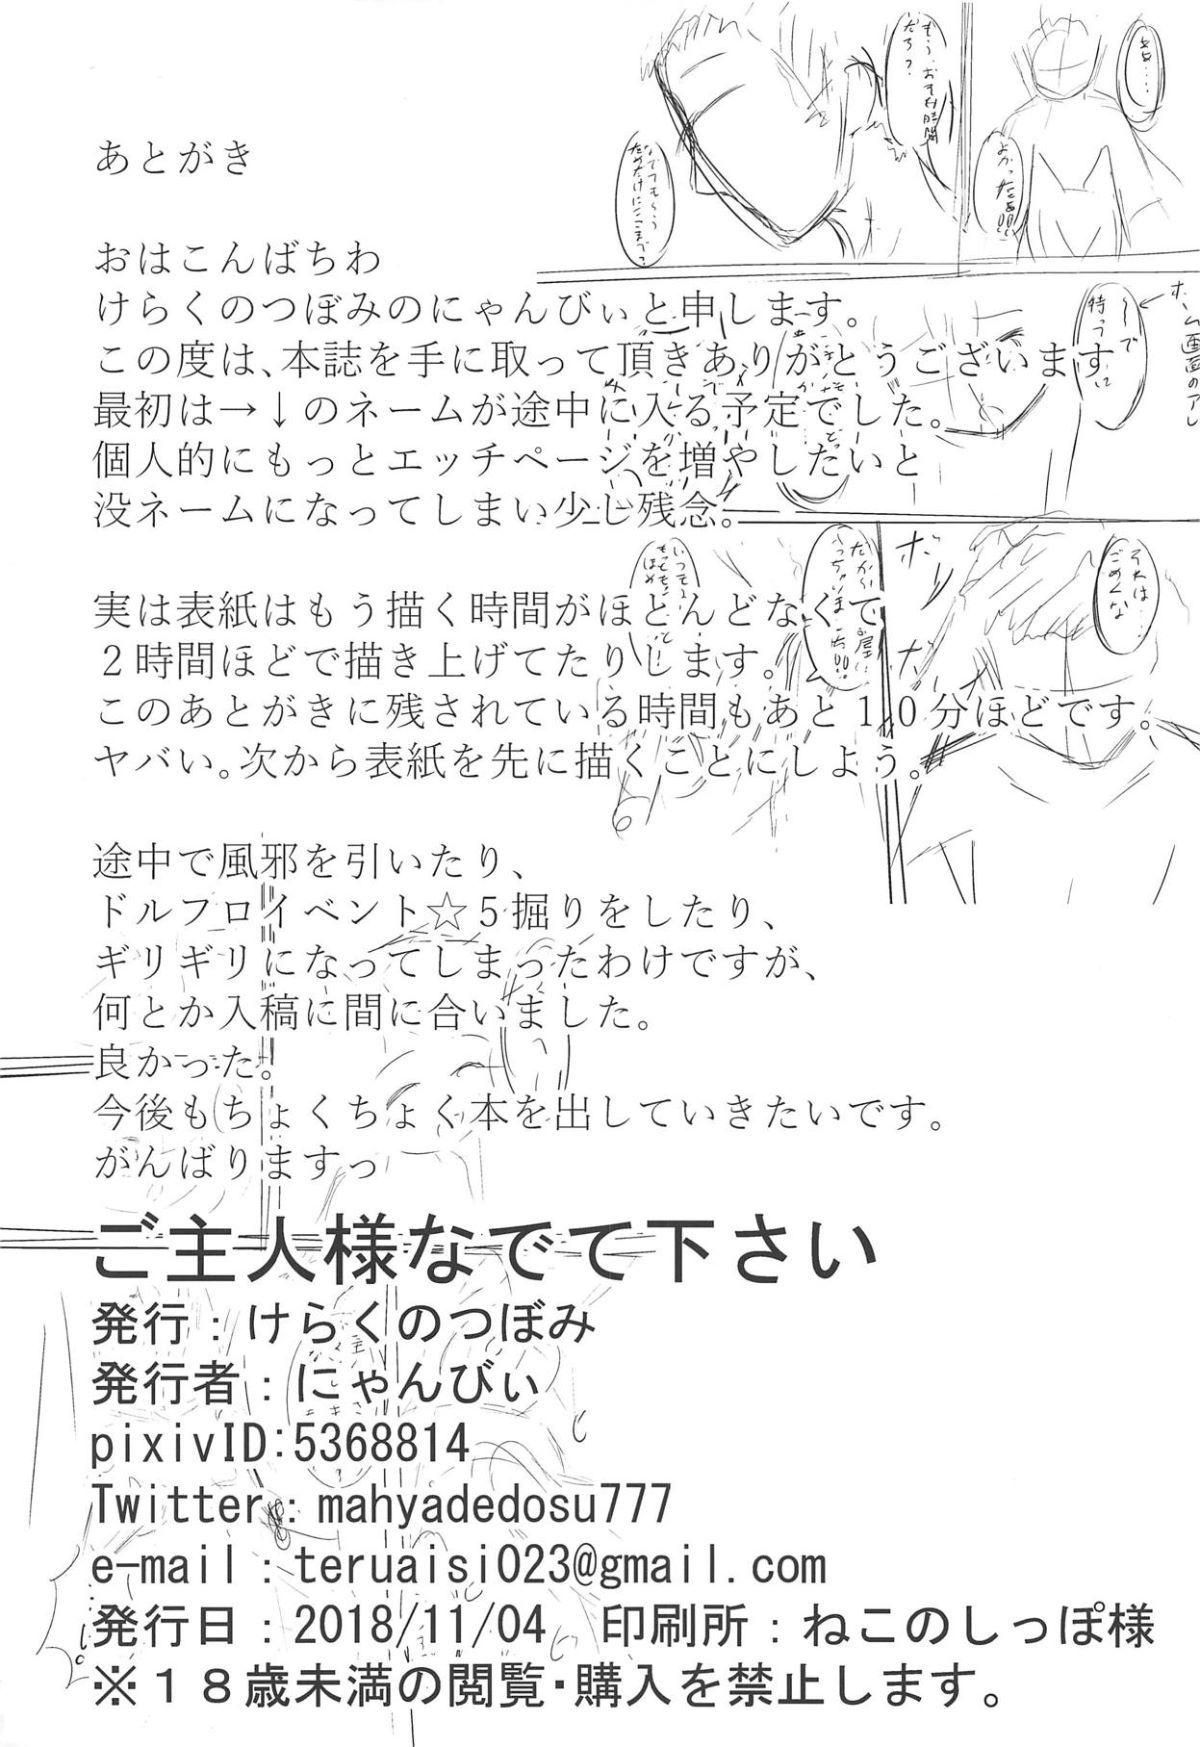 あとがき
おはこんばちわ
けらくのつぼみのにゃんびぃと申します。
この度は、本誌を手に取って頂きありがとうございます
最初は→↓のネームが途中に入る予定でした。
個人的にもっとエッチページを増やしたいと
没ネームになってしまい少し残念。
実は表紙はもう描く時間がほとんどなくて
２時間ほどで描き上げてたりします。
このあとがきに残されている時間もあと１０分ほどです。
ヤバい。次から表紙を先に描くことにしよう。
途中で風邪を引いたり、
ドルフロイベント☆５掘りをしたり、
ギリギリになってしまったわけですが、
何とか入稿に間に合いました。
良かった。
今後もちょくちょく本を出していきたいです。
がんばりますっ
ご主人様なでて下さい
発行：けらくのつぼみ
発行者：にゃんびぃ
pixivID:5368814
Twitter：mahyadedosu777
e-mail：teruaisi023@gmail.com
発行日：2018/11/04　印刷所：ねこのしっぽ様
※１８歳未満の閲覧・購入を禁止します。
もう、おやすみ時間
だろ？
なでてもらう
ためだけにここまで？
よかったぁ!!
ホーム画面のアレ
〜で
待ってて
それは…
ごめんな